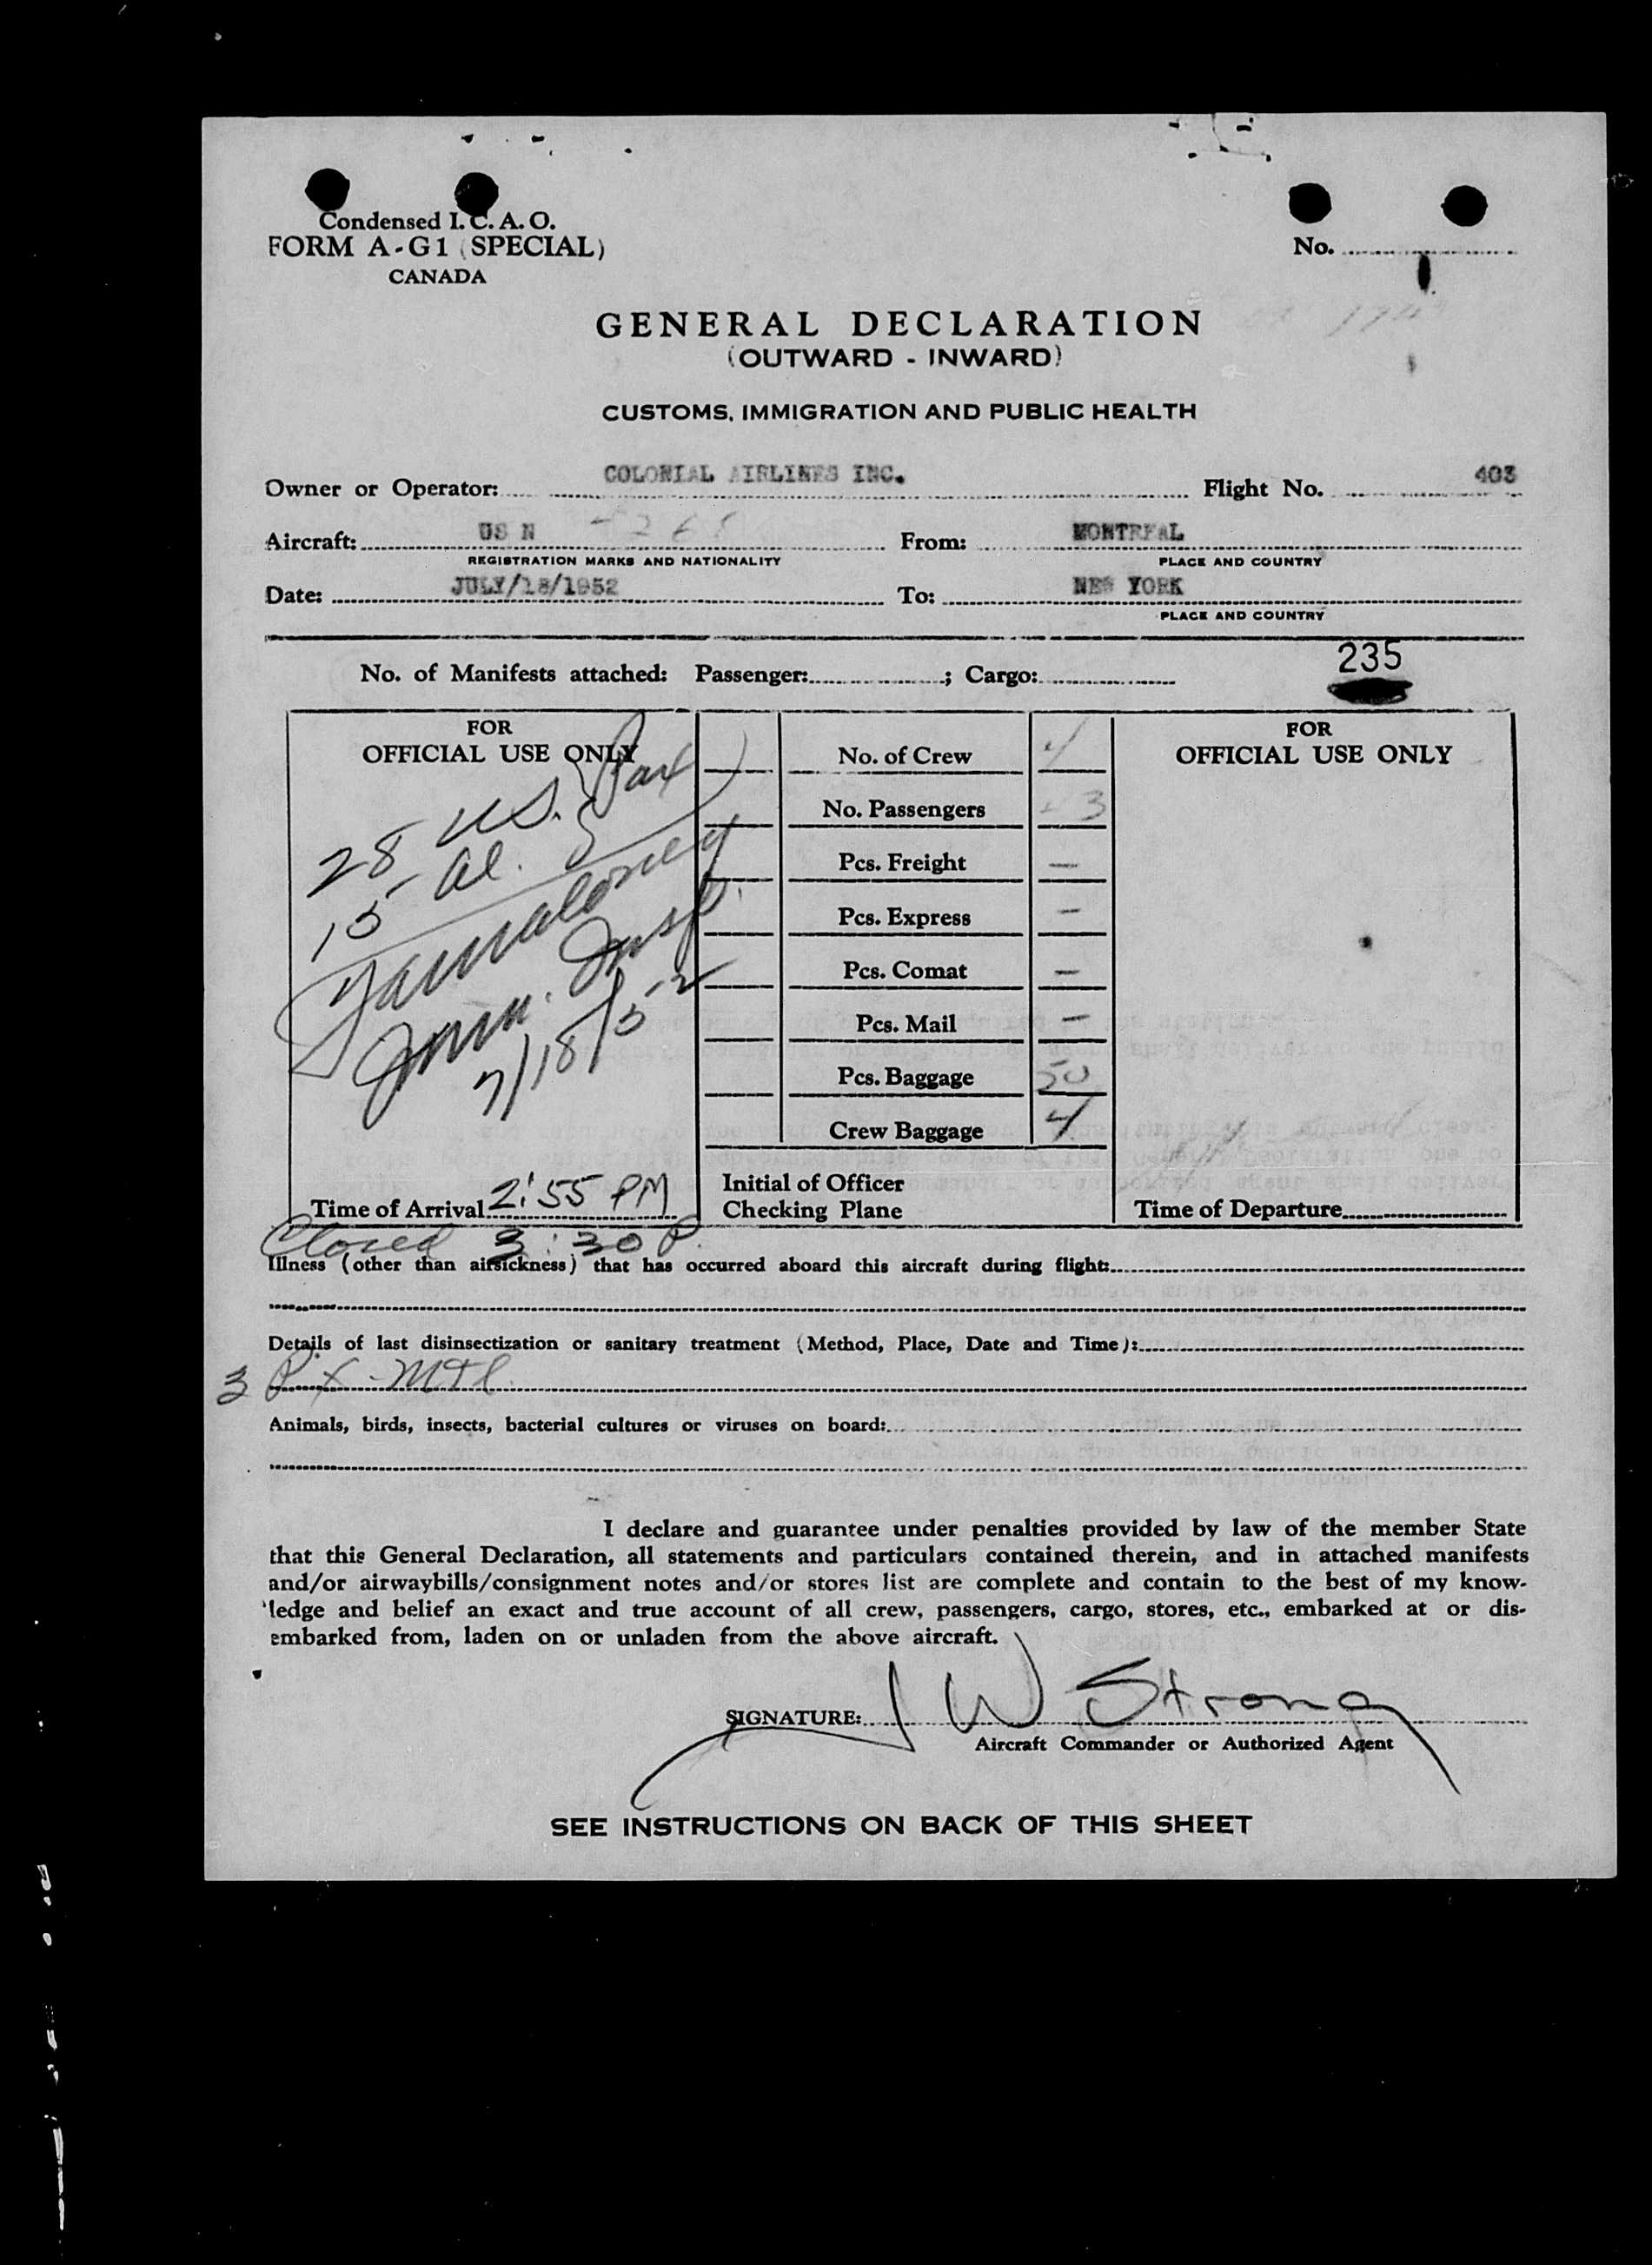 Condensed I. C. A. O.
FORM A-G1 (SPECIAL)
CANADA
No.
GENERAL DECLARATION
(OUTWARD - INWARD)
CUSTOMS, IMMIGRATION AND PUBLIC HEALTH
Owner or Operator: COLONIAL AIRLINES INC. Flight No. 403
Aircraft: US N From: MONTREAL
REGISTRATION MARKS AND NATIONALITY PLACE AND COUNTRY
Date: JULY/18/1952 To: NEW YORK
PLACE AND COUNTRY
No. of Manifests attached: Passenger: ; Cargo: 235
FOR
OFFICIAL USE ONLY
28 US. Pax
15 Al.
Imm. Insp.
7/18/52
Time of Arrival 2:55 PM
Closed 3:30 P.
No. of Crew 4
No. Passengers 43
Pcs. Freight —
Pcs. Express —
Pcs. Comat —
Pcs. Mail —
Pcs. Baggage 50
Crew Baggage 4
Initial of Officer
Checking Plane
FOR
OFFICIAL USE ONLY
Time of Departure
Illness (other than airsickness) that has occurred aboard this aircraft during flight:
Details of last disinsectization or sanitary treatment (Method, Place, Date and Time):
3 Px - Mtl.
Animals, birds, insects, bacterial cultures or viruses on board:
I declare and guarantee under penalties provided by law of the member State
that this General Declaration, all statements and particulars contained therein, and in attached manifests
and/or airwaybills/consignment notes and/or stores list are complete and contain to the best of my know-
ledge and belief an exact and true account of all crew, passengers, cargo, stores, etc., embarked at or dis-
embarked from, laden on or unladen from the above aircraft.
SIGNATURE: J W Strong
Aircraft Commander or Authorized Agent
SEE INSTRUCTIONS ON BACK OF THIS SHEET